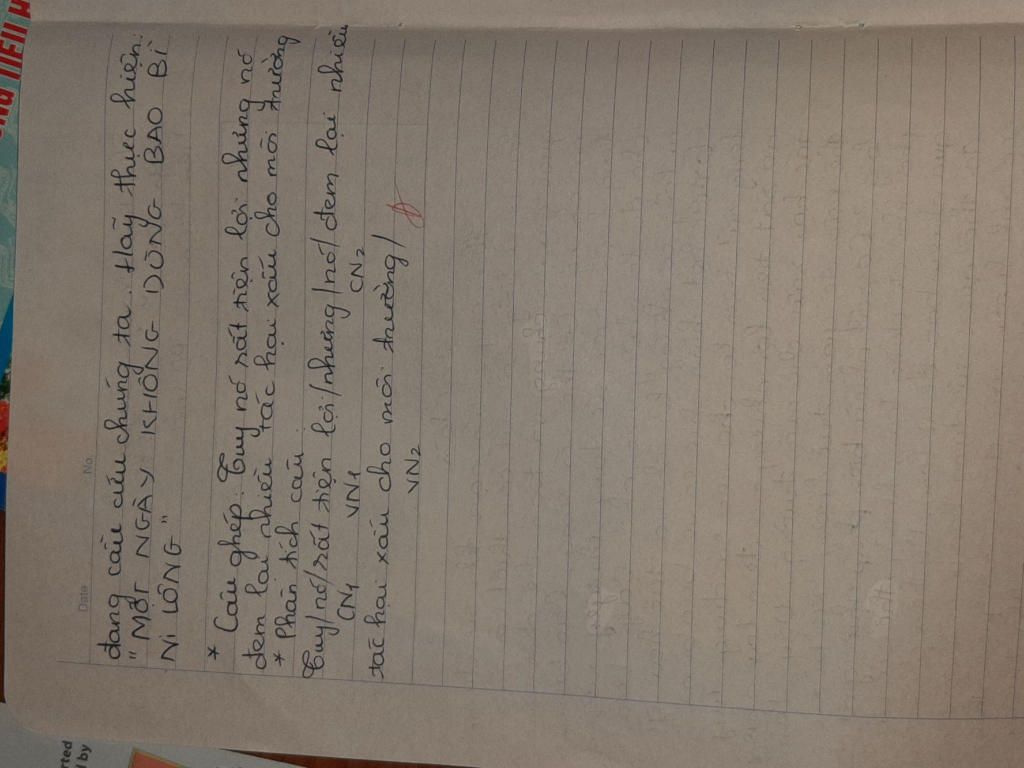 No.
Date
đang cầu cứu chúng ta. Hãy thực hiện:
" MỘT NGÀY KHÔNG DÙNG BAO BÌ
Ni LÔNG "
* Câu ghép: Tuy nó rất tiện lợi nhưng nó
đem lại nhiều tác hại xấu cho môi trường
* Phân tích câu:
Tuy/nó/rất tiện lợi/nhưng/nó/đem lại nhiều
CN1 VN1 CN2
tác hại xấu cho môi trường/
VN2